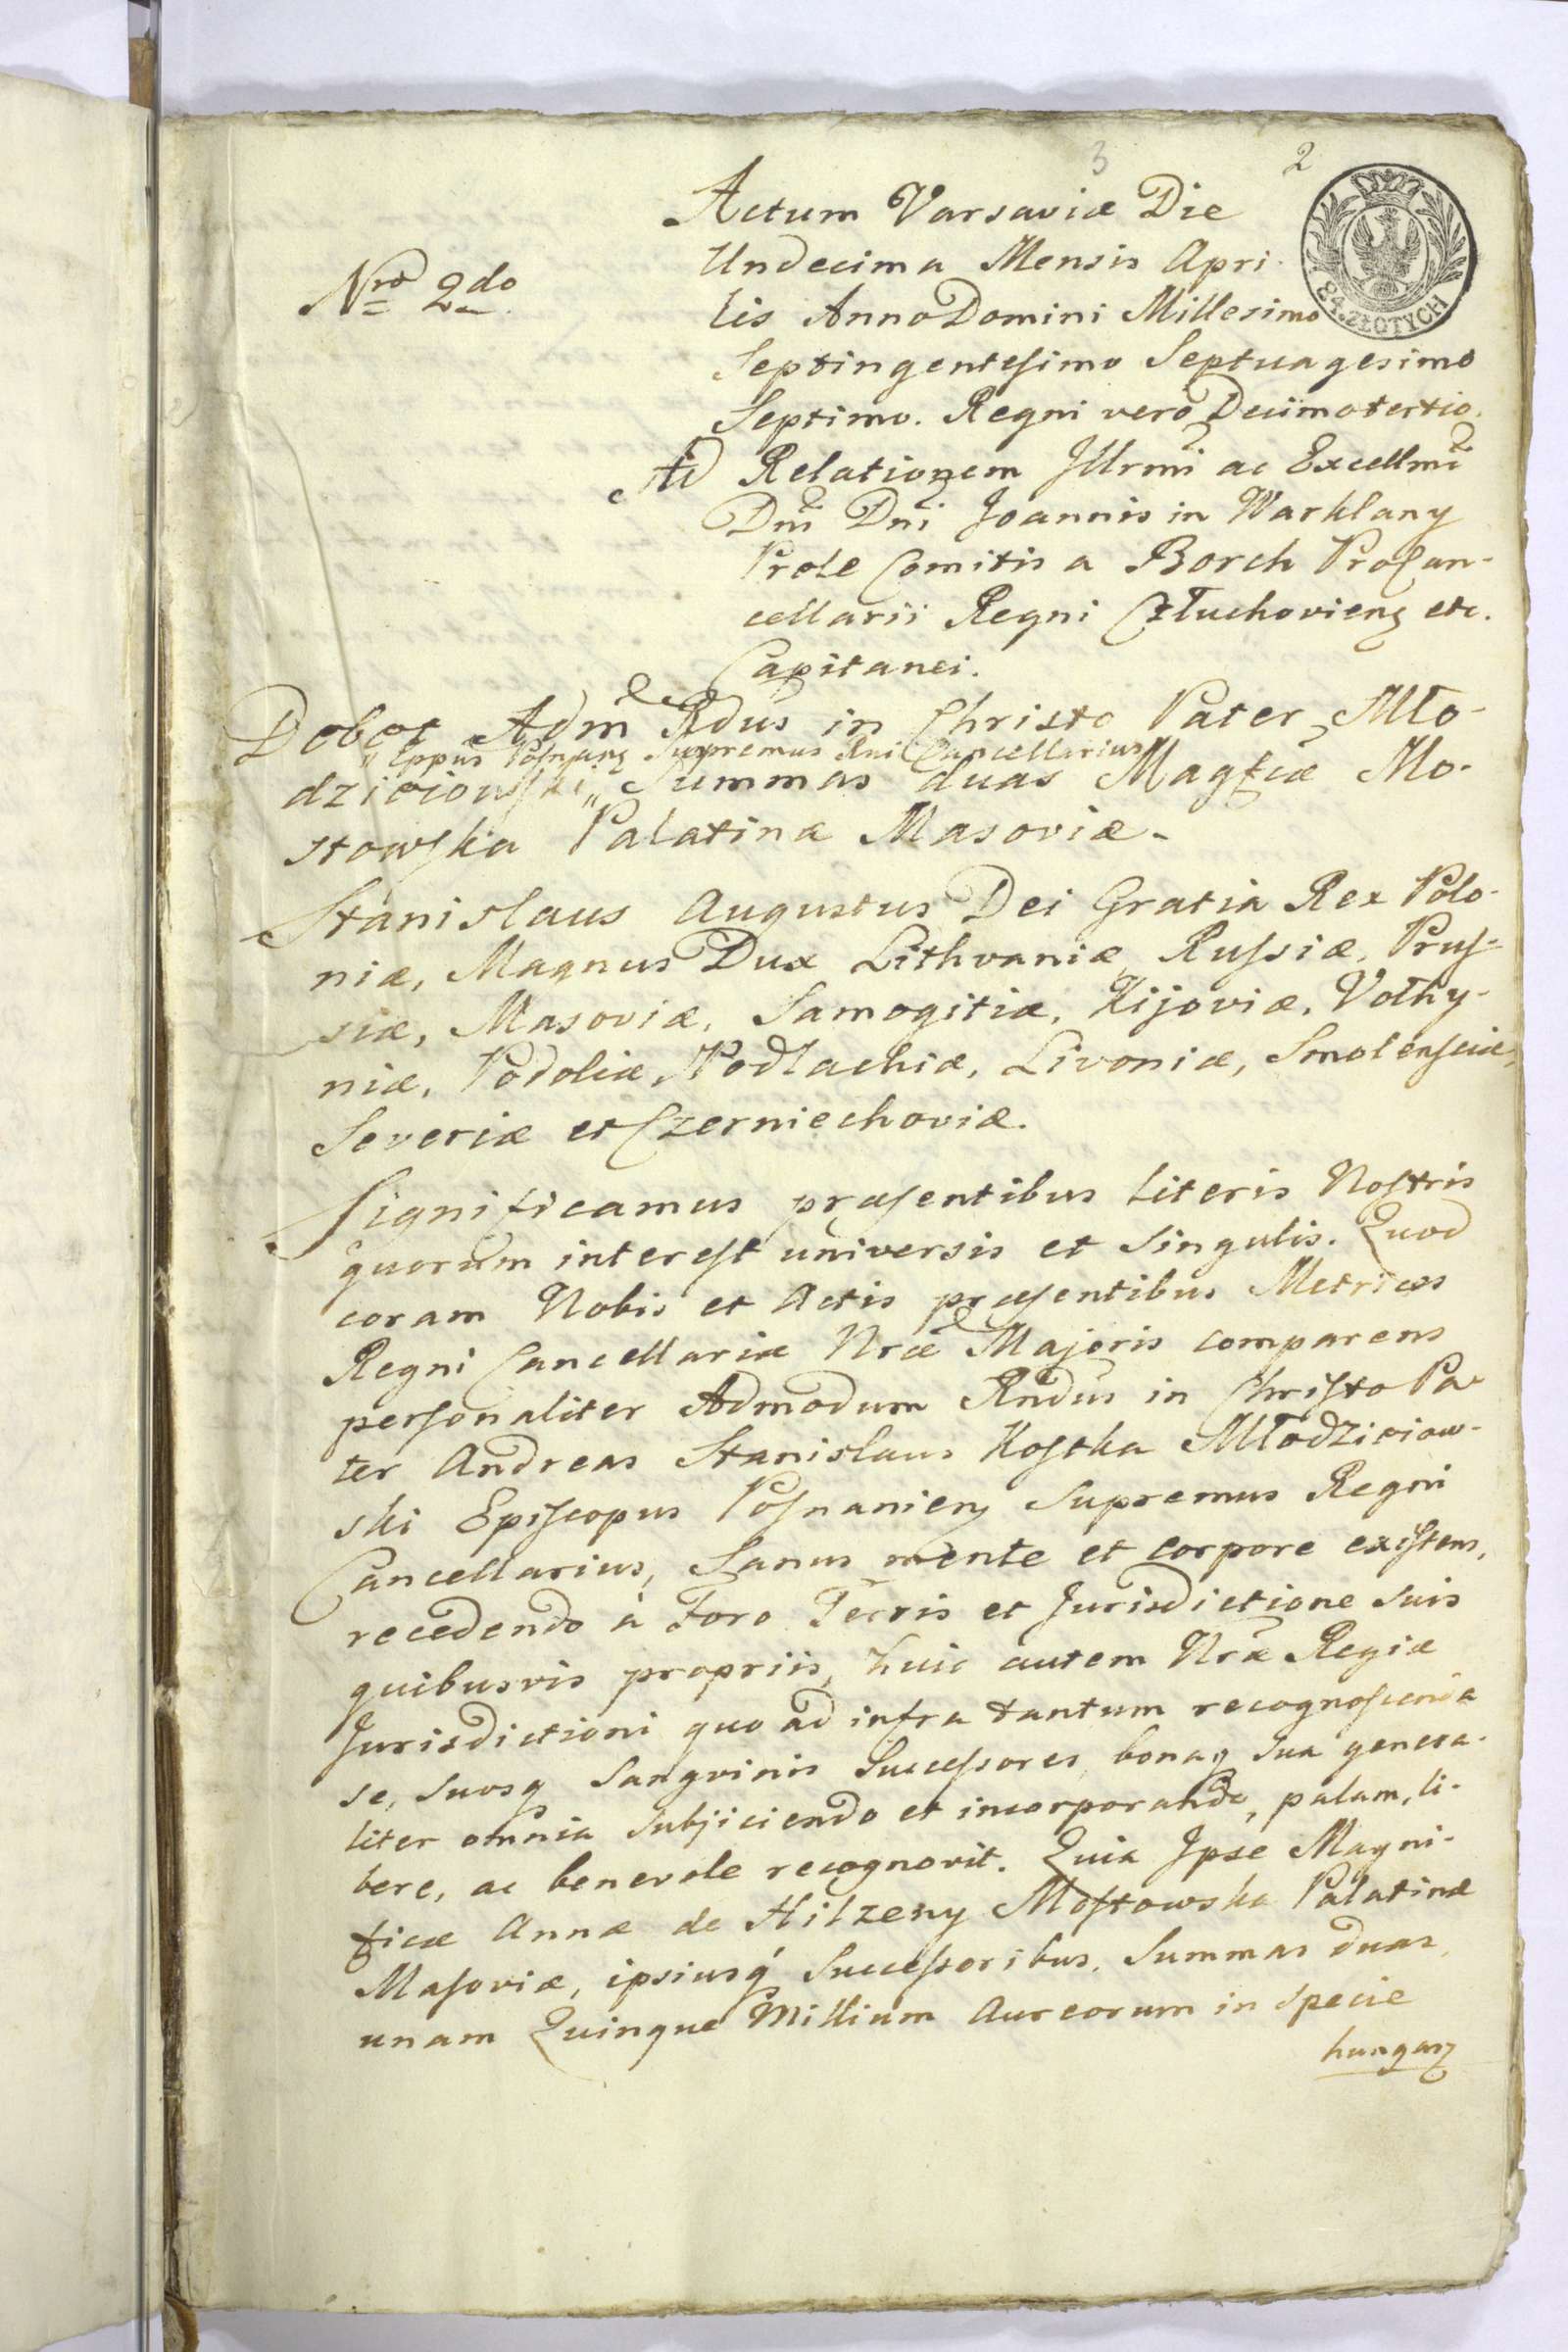 3 2
Actum Varsaviæ Die
Undecima Mensis Apri-
Nro 2do
lis Anno Domini Millesimo
84. ZŁOTYCH
Septingentesimo Septuagesimo
Septimo. Regni vero Decimotertio.
Ad Relationem Illrmi ac Excellmi
Dni Dni Joannis in Warklany
Prele Comitis a Borch ProCan-
cellarii Regni Człuchovienẜ etc.
Capitanei.
Debet Adm Rdus in Christo Pater Mło-
„ Eppus Posnanẜ Supremus Rni Cancellarius
dzieiowski „ Summas duas Magfcæ Mo-
stowska Palatinæ Masoviæ.
Stanislaus Augustus Dei Gratia Rex Polo-
niæ, Magnus Dux Lithvaniæ, Russiæ, Prus-
siæ, Masoviæ, Samogitiæ, Kijoviæ, Volhy-
niæ, Podoliæ, Podlachiæ, Livoniæ, Smolensciæ,
Severiæ et Czerniechoviæ.
Significamus præsentibus Literis Nostris
quorum interest universis et singulis. Quod
coram Nobis et Actis præsentibus Metrices
Regni Cancellariæ Nræ Majoris comparens
personaliter Admodum Rndus in Christo Pa-
ter Andreas Stanislaus Kostka Młodzieiow-
ski Episcopus Posnanienẜ Supremus Regni
Cancellarius, Sanus mente et corpore existens,
recedendo à Foro Terris et Jurisdictione suis
quibusvis propriis, huic autem Nræ Regiæ
Jurisdictioni quo ad infra tantum recognoscenda
se, suosq Sangvinis Successores, bonaq sua genera-
liter omnia subjiciendo et incorporando, palam, li-
bere, ac benevole recognovit. Quia Ipse Magni-
ficæ Annæ de Hilzeny Mostowska Palatinæ
Masoviæ, ipsiusq Successoribus, Summas duas,
unam Quinque Millium Aureorum in specie
hungarẜ